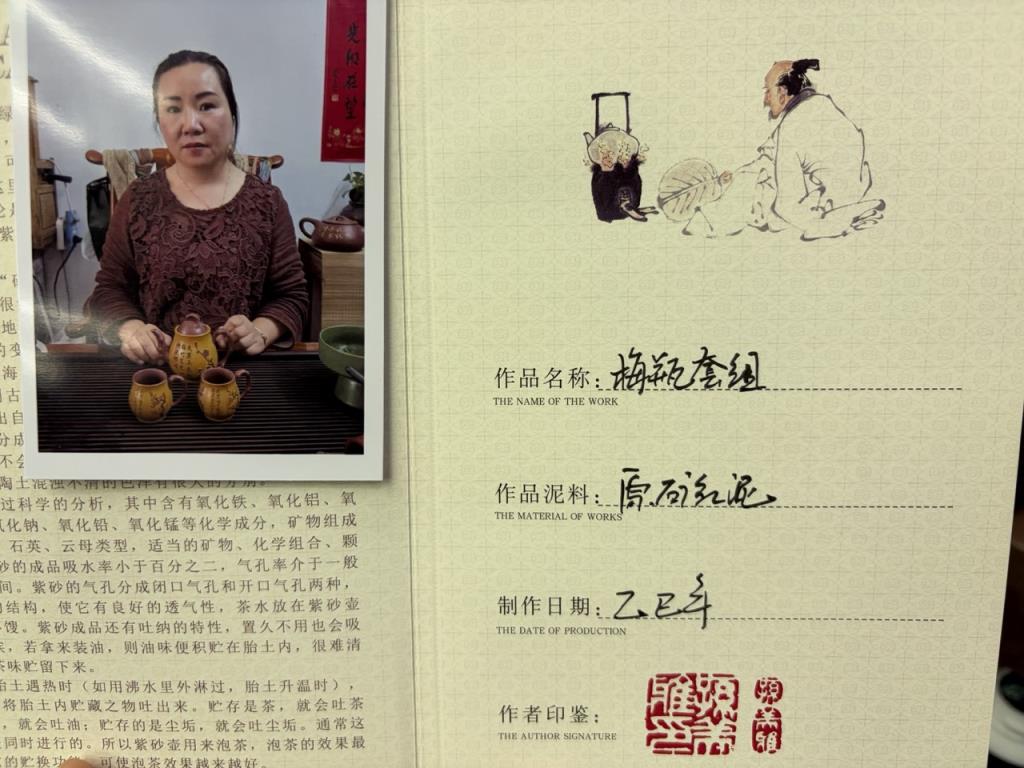 光阳在望
陶土混浊不清的色泽有很大的分别。
过科学的分析，其中含有氧化铁、氧化铝、氧
化钠、氧化铅、氧化锰等化学成分，矿物组成
石英、云母类型，适当的矿物、化学组合、颗
砂的成品吸水率小于百分之二，气孔率介于一般
间。紫砂的气孔分成闭口气孔和开口气孔两种，
结构，使它有良好的透气性，茶水放在紫砂壶
馊。紫砂成品还有吐纳的特性，置久不用也会吸
，若拿来装油，则油味便积贮在胎土内，很难清
茶味贮留下来。
胎土遇热时（如用沸水里外淋过，胎土升温时），
将胎土内贮藏之物吐出来。贮存是茶，就会吐茶
，就会吐油；贮存的是尘垢，就会吐尘垢。通常这
同时进行的。所以紫砂壶用来泡茶，泡茶的效果最
的贮换功 可使泡茶效果越来越好。
作品名称：梅瓶套组
THE NAME OF THE WORK
作品泥料：原石红泥
THE MATERIAL OF WORKS
制作日期：乙巳年
THE DATE OF PRODUCTION
作者印鉴：
THE AUTHOR SIGNATURE